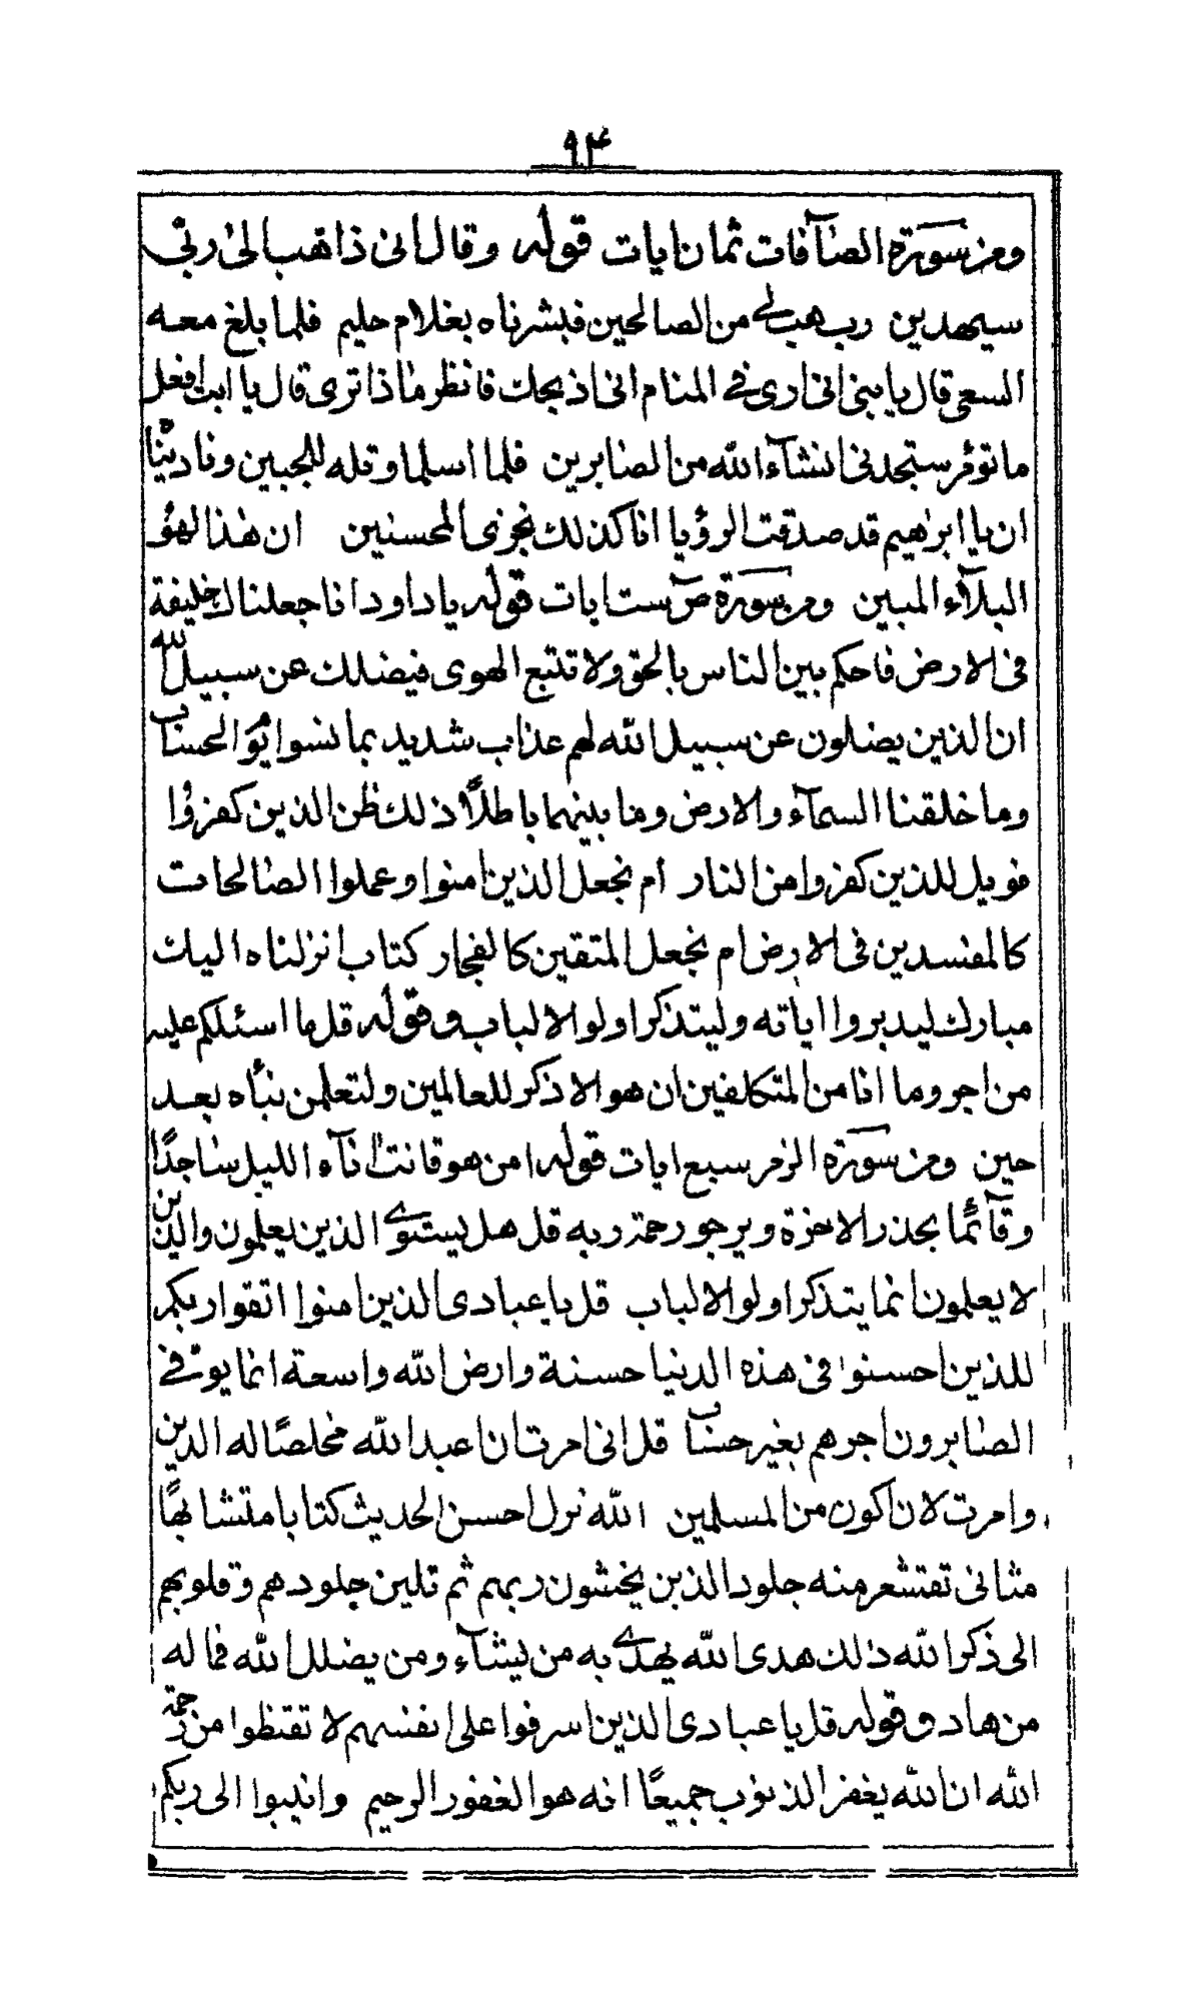 ٩٤
ومن سورة الصآفات ثمان ايات قوله وقال انى ذاهب الى ربى
سيهدين رب هب لى من الصالحين فبشرناه بغلام حليم فلما بلغ معه
السعى قال يا بنى انى ارى فى المنام انى اذبحك فانظر ماذا ترى قال يا ابت افعل
ما تؤمر ستجدنى انشآء الله من الصابرين فلما اسلما وتله للجبين وناديناه
ان يا ابراهيم قد صدقت الرؤيا انا كذلك نجزى المحسنين ان هذا لهو
البلآء المبين ومن سورة ص ست ايات قوله يا داود انا جعلناك خليفة
فى الارض فاحكم بين الناس بالحق ولا تتبع الهوى فيضلك عن سبيل الله
ان الذين يضلون عن سبيل الله لهم عذاب شديد بما نسوا يوم الحساب
وما خلقنا السمآء والارض وما بينهما باطلاً ذلك ظن الذين كفروا
فويل للذين كفروا من النار أم نجعل الذين امنوا وعملوا الصالحات
كالمفسدين فى الارض ام نجعل المتقين كالفجار كتاب انزلناه اليك
مبارك ليدبروا اياته وليتذكر اولوا الالباب وقوله قل ما اسئلكم عليه
من اجر وما انا من المتكلفين ان هو الا ذكر للعالمين ولتعلمن نبأه بعد
حين ومن سورة الزمر سبع ايات قوله امن هو قانت انآء الليل ساجدًا
وقآئمًا يحذر الاخرة ويرجو رحمة ربه قل هل يستوى الذين يعلمون والذين
لا يعلمون انما يتذكر اولوا الالباب قل يا عبادى الذين امنوا اتقوا ربكم
للذين احسنوا فى هذه الدنيا حسنة وارض الله واسعة انما يوفى
الصابرون اجرهم بغير حساب قل انى امرت ان اعبد الله مخلصًا له الدين
وامرت لان اكون من المسلمين الله نزل احسن الحديث كتابا متشابهًا
مثانى تقشعر منه جلود الذين يخشون ربهم ثم تلين جلودهم وقلوبهم
الى ذكر الله ذلك هدى الله يهدى به من يشآء ومن يضلل الله فما له
من هاد وقوله قل يا عبادى الذين اسرفوا على انفسهم لا تقنطوا من رحمة
الله ان الله يغفر الذنوب جميعًا انه هو الغفور الرحيم وانيبوا الى ربكم